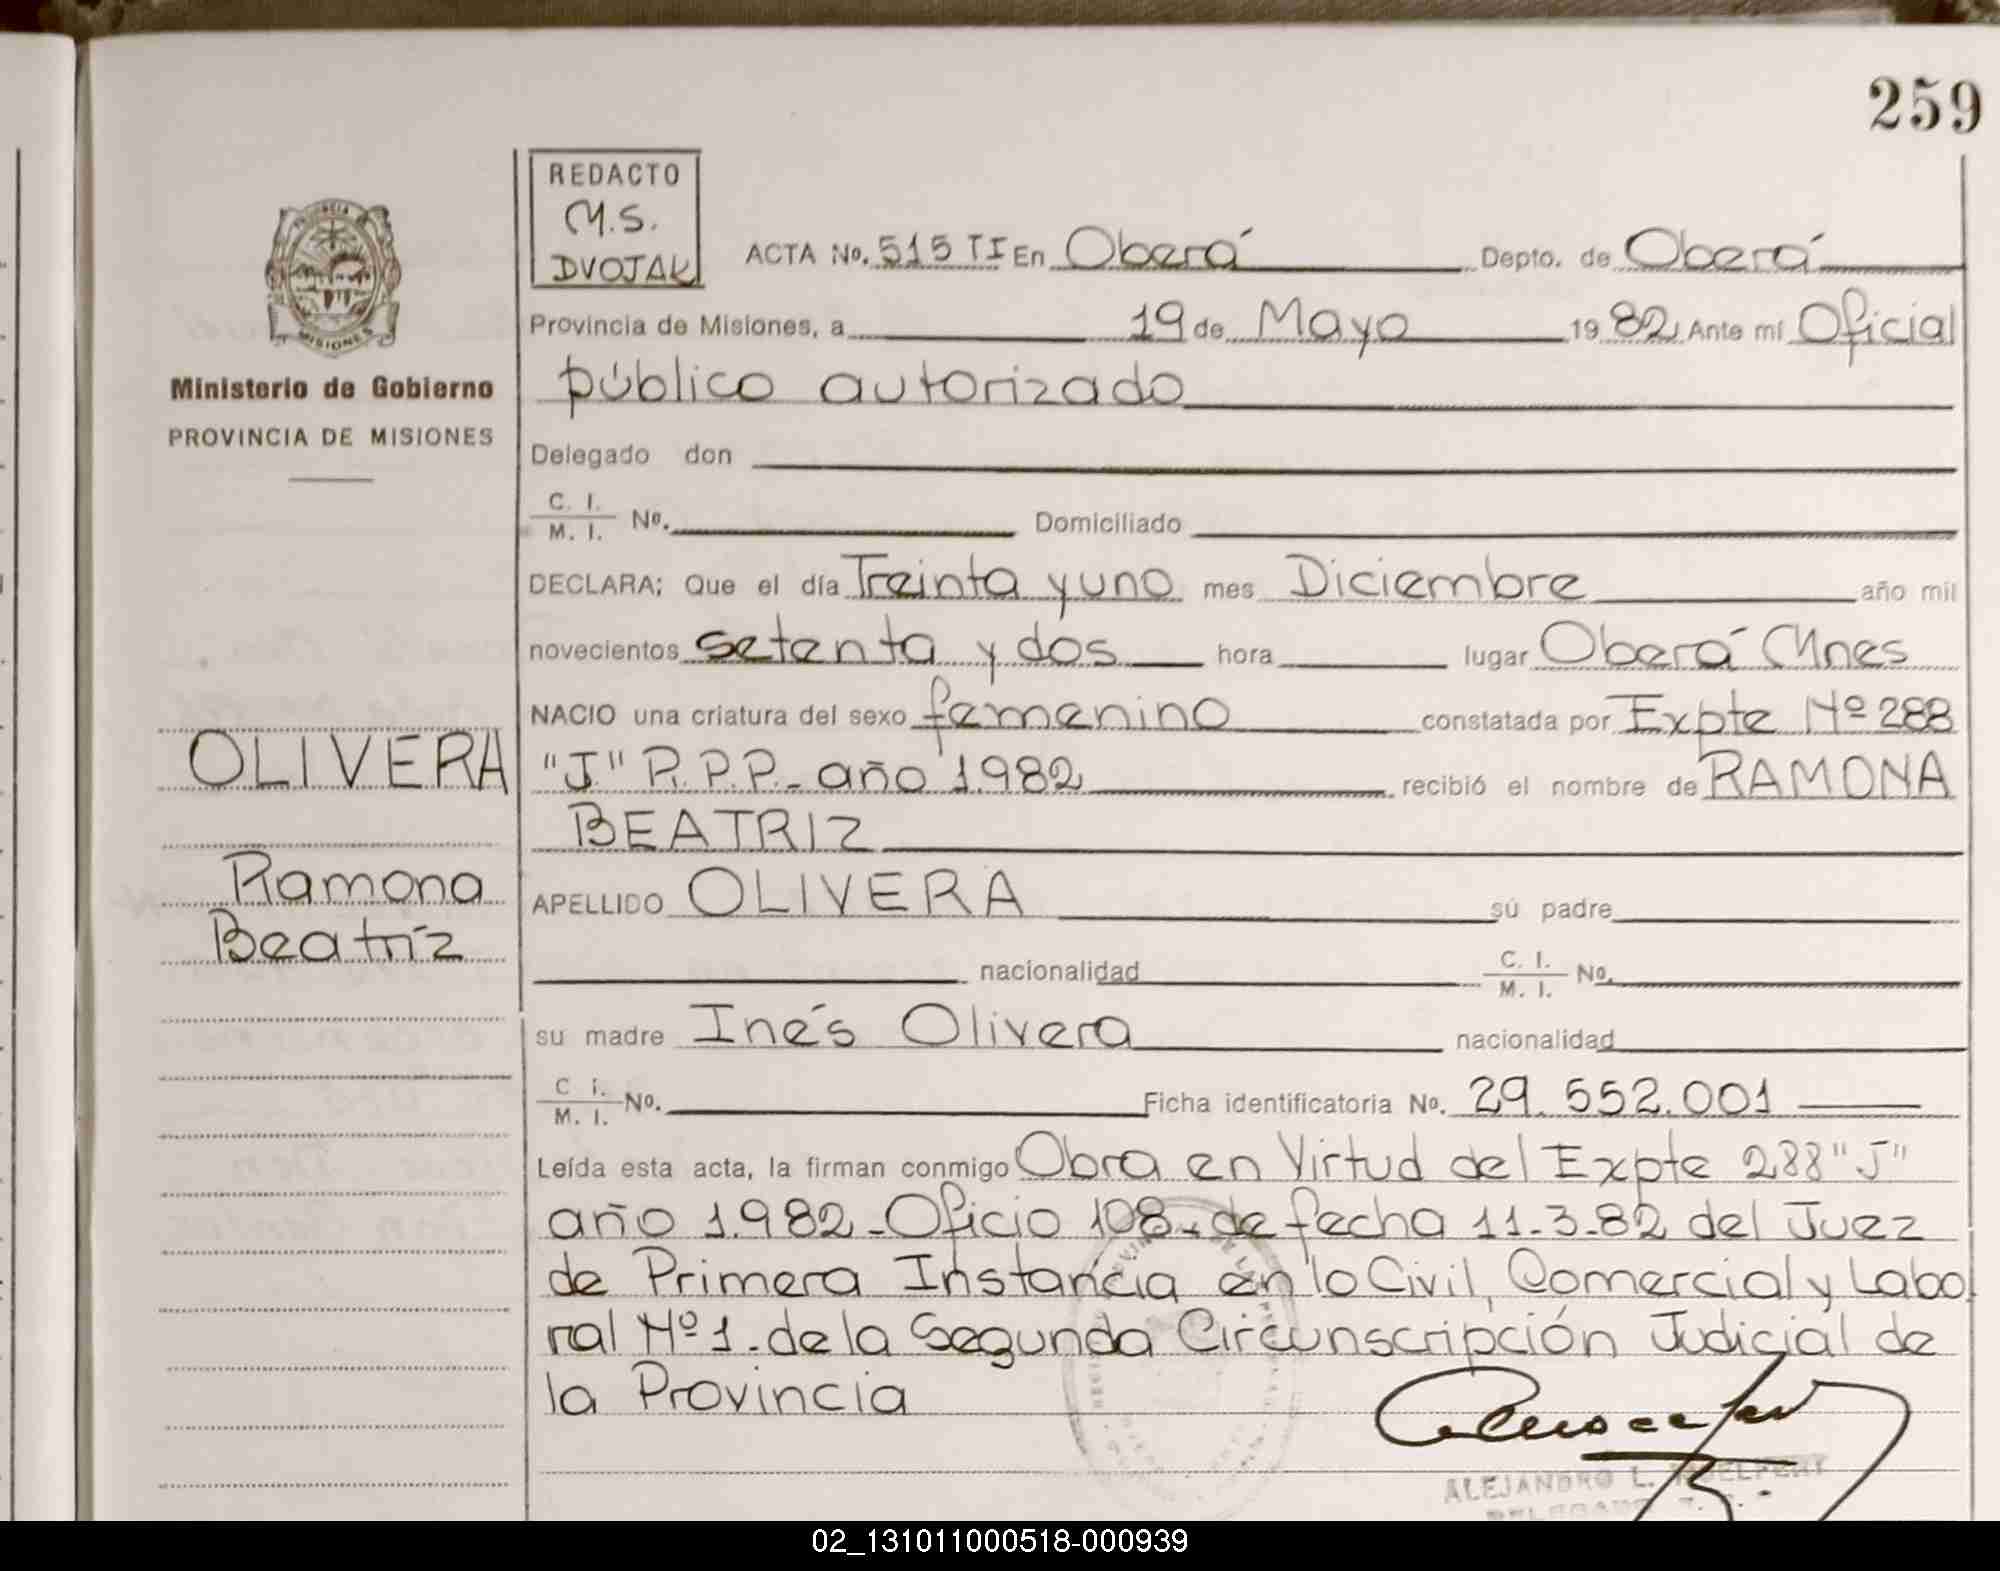 259
REDACTO
M.S.
DVOJAK
ACTA No. 515 TI En Oberá Depto. de Oberá
Provincia de Misiones, a 19 de Mayo 1982 Ante mí Oficial
público autorizado
Ministerio de Gobierno
PROVINCIA DE MISIONES
Delegado don
C. I.
M. I. No. Domiciliado
DECLARA; Que el día Treinta y uno mes Diciembre año mil
novecientos setenta y dos hora lugar Oberá Mnes
NACIO una criatura del sexo femenino constatada por Expte Nº 288
OLIVERA
"J" P.P.P.- año 1.982 recibió el nombre de RAMONA
BEATRIZ
Ramona
Beatríz
APELLIDO OLIVERA sú padre
nacionalidad C. I.
M. I. No.
su madre Inés Olivera nacionalidad
C i.
M. I. No. Ficha identificatoria No. 29.552.001
Leída esta acta, la firman conmigo Obra en Virtud del Expte 288 "J"
año 1.982 - Oficio 108 - de fecha 11-3-82 del Juez
de Primera Instancia en lo Civil, Comercial y Labo
ral Nº 1 - de la Segunda Circunscripción Judicial de
la Provincia
ALEJANDRO L.
02_131011000518-000939